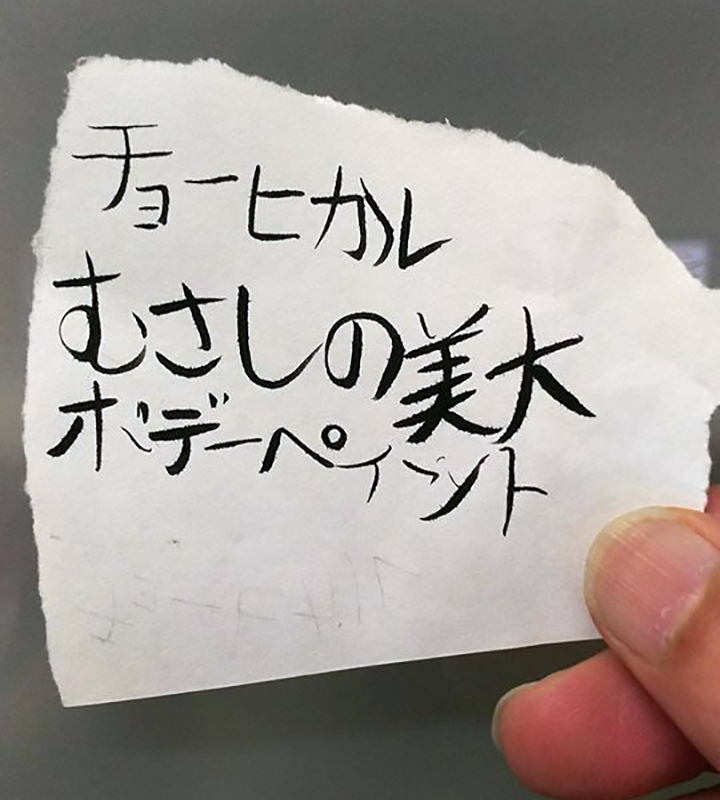 チョーヒカル
むさしの美大
ボデーペイント